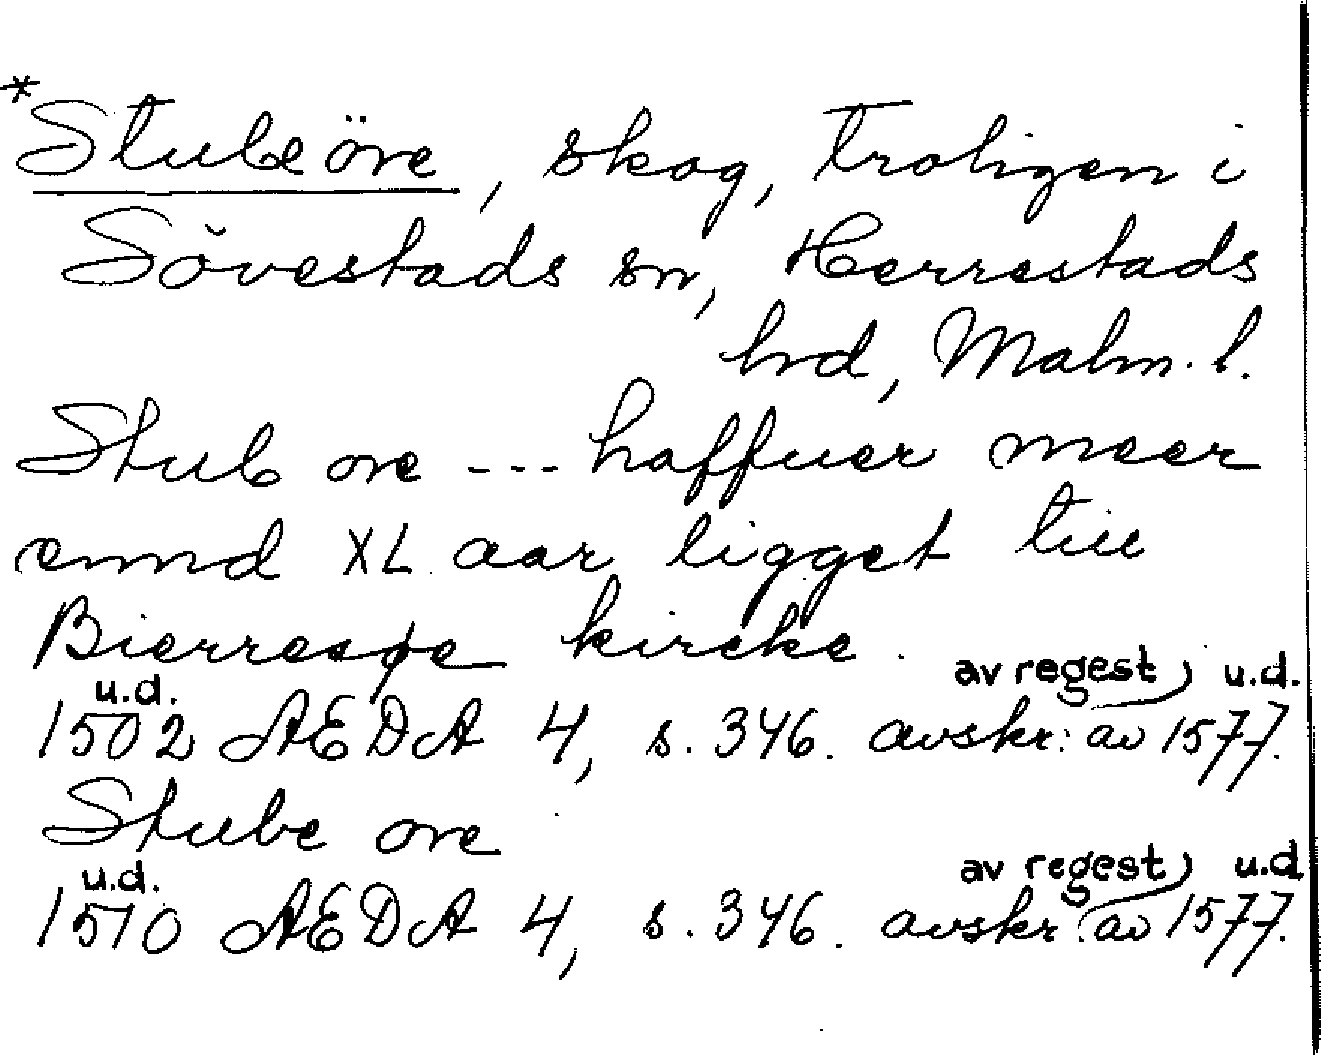 *Stubeöre, skog, troligen i
Sövestads sn, Herrestads
hrd, Malm. l.
Stub ore --- haffuer meer
ennd XL aar ligget till
Bierresøe kircke.
u.d. av regest) u.d.
1502 AEDA 4, s. 346. avskr. av 1577.
Stube ore
u.d. av regest) u.d.
1510 AEDA 4, s. 346. avskr. av 1577.